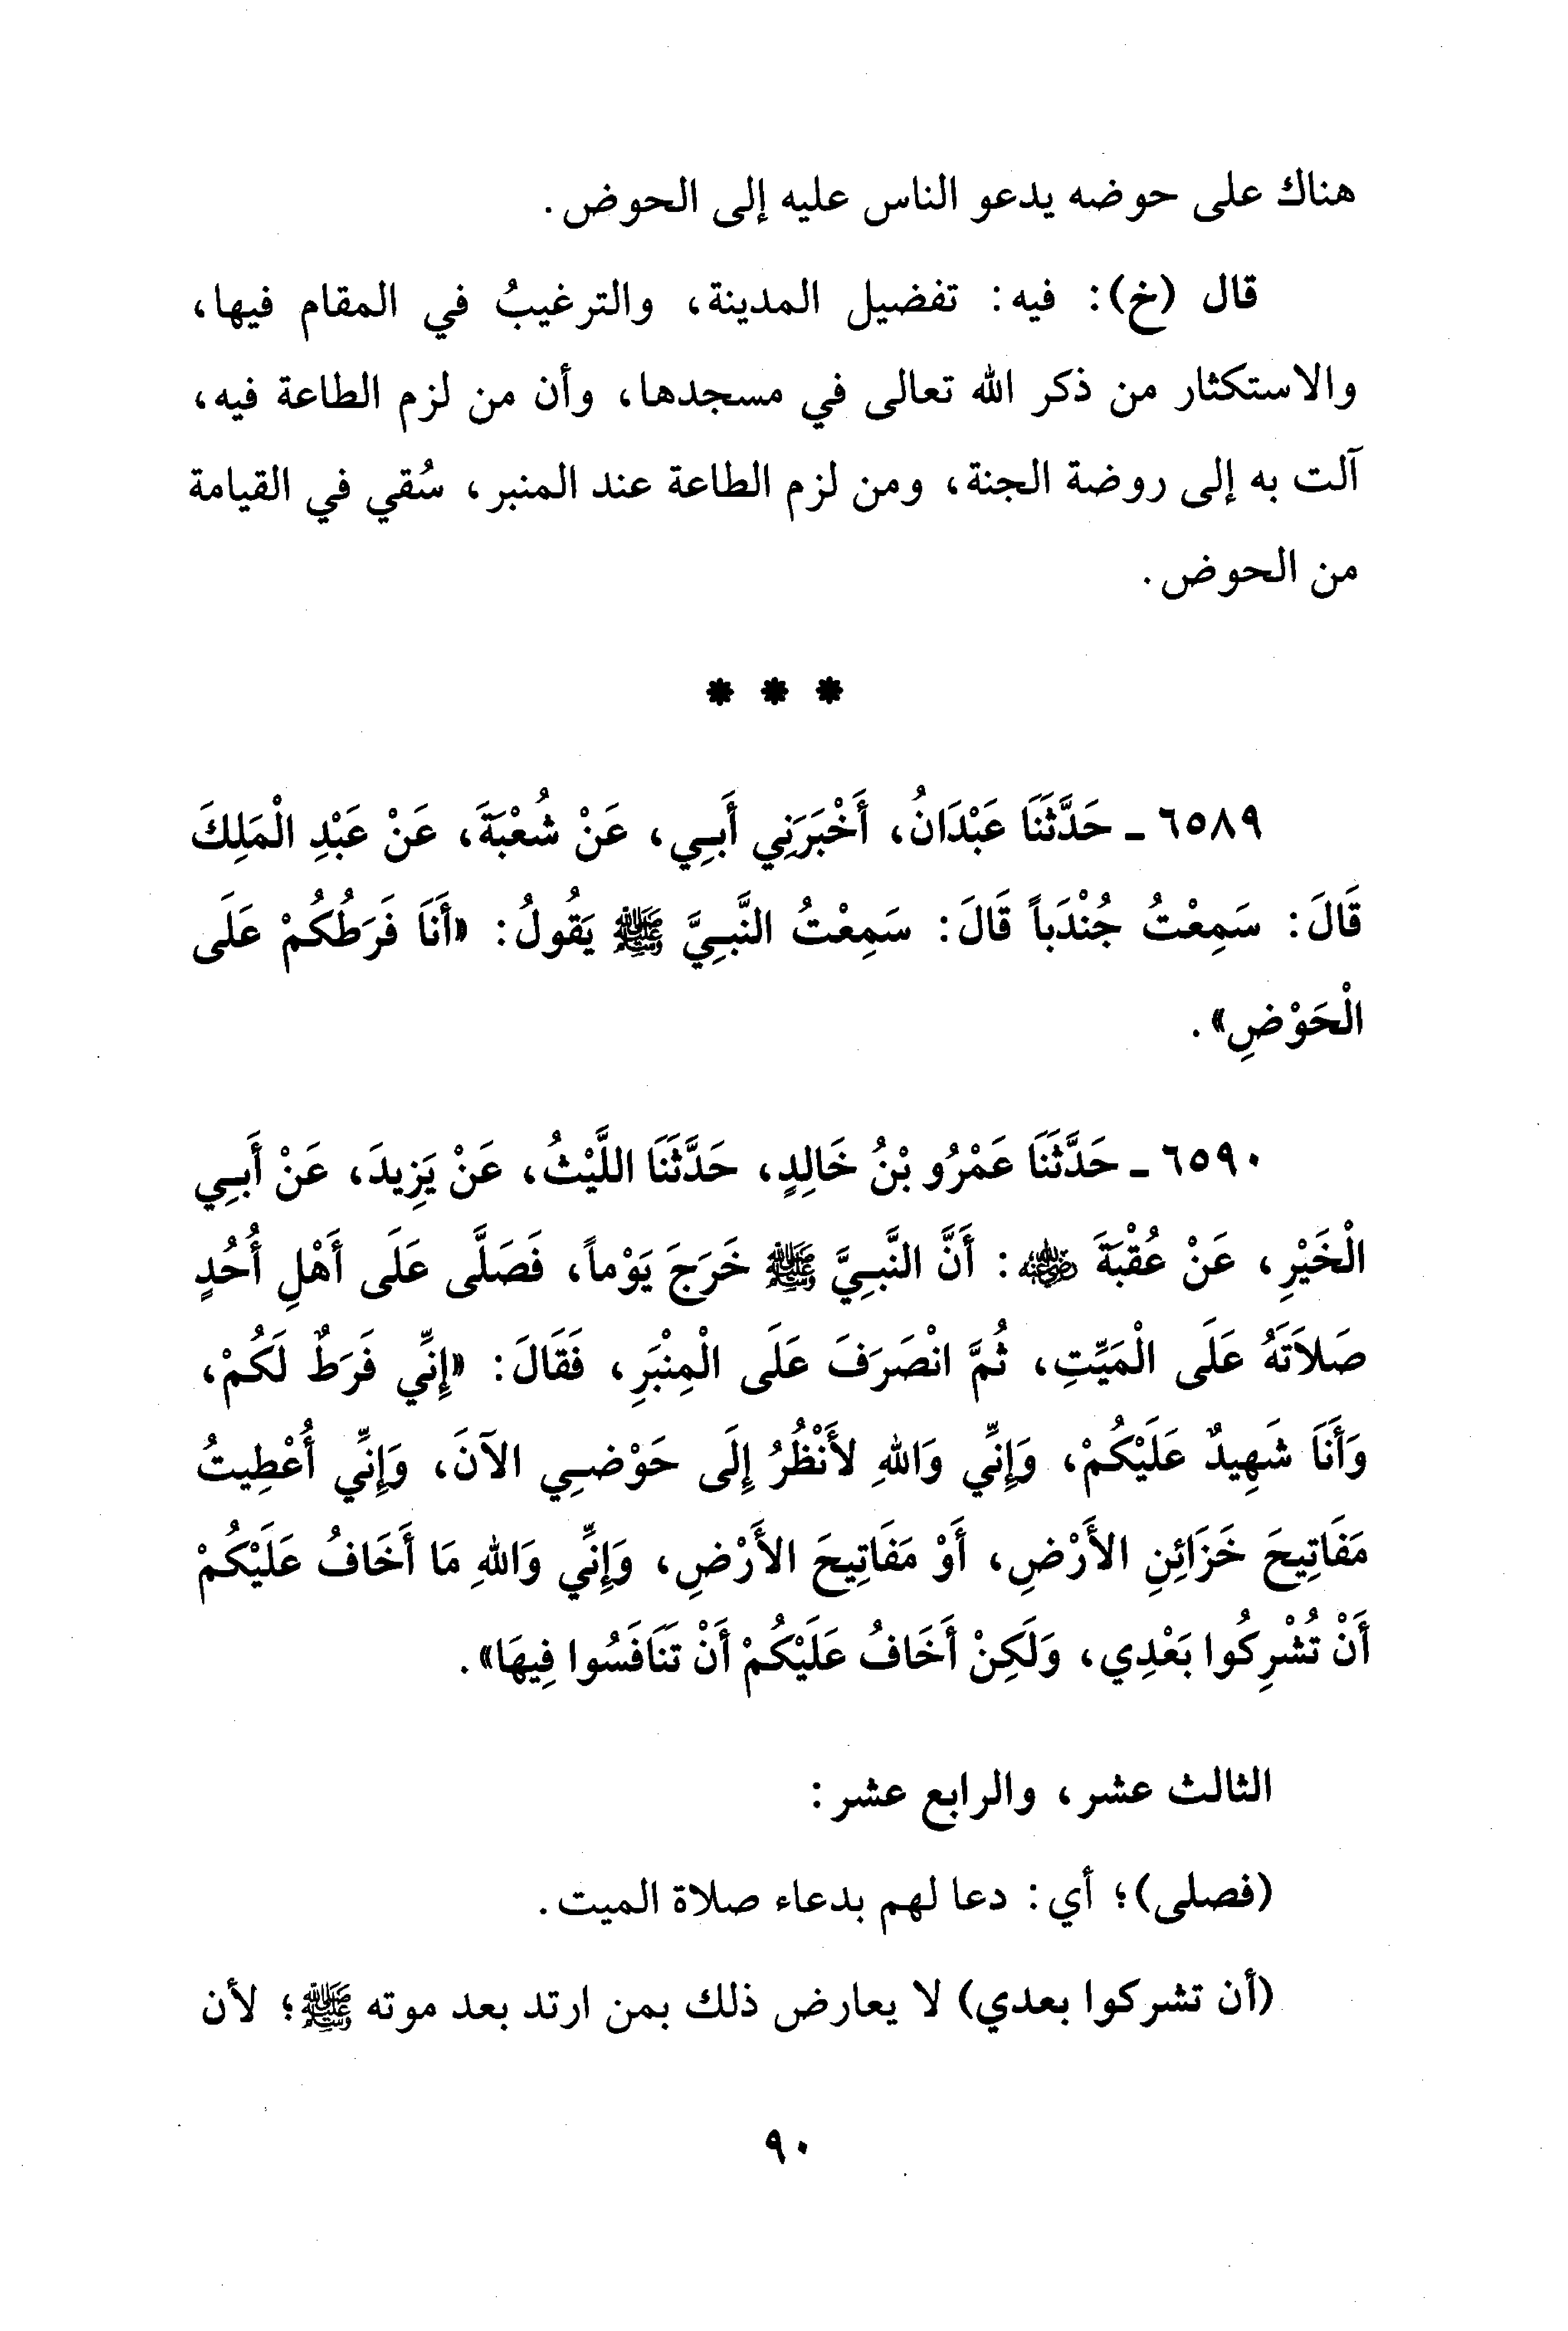 هناك على حوضه يدعو الناس عليه إلى الحوض.
قال (خ): فيه: تفضيل المدينة، والترغيبُ في المقام فيها،
والاستكثار من ذكر الله تعالى في مسجدها، وأن من لزم الطاعة فيه،
آلت به إلى روضة الجنة، ومن لزم الطاعة عند المنبر، سُقي في القيامة
من الحوض.
* * *
٦٥٨٩ ـ حَدَّثَنَا عَبْدَانُ، أَخْبَرَنِي أَبِي، عَنْ شُعْبَةَ، عَنْ عَبْدِ الْمَلِكَ
قَالَ: سَمِعْتُ جُنْدَباً قَالَ: سَمِعْتُ النَّبِيَّ ﷺ يَقُولُ: «أَنَا فَرَطُكُمْ عَلَى
الْحَوْضِ».
٦٥٩٠ ـ حَدَّثَنَا عَمْرُو بْنُ خَالِدٍ، حَدَّثَنَا اللَّيْثُ، عَنْ يَزِيدَ، عَنْ أَبِي
الْخَيْرِ، عَنْ عُقْبَةَ رضي الله عنه: أَنَّ النَّبِيَّ ﷺ خَرَجَ يَوْماً، فَصَلَّى عَلَى أَهْلِ أُحُدٍ
صَلاَتَهُ عَلَى الْمَيِّتِ، ثُمَّ انْصَرَفَ عَلَى الْمِنْبَرِ، فَقَالَ: «إِنِّي فَرَطٌ لَكُمْ،
وَأَنَا شَهِيدٌ عَلَيْكُمْ، وَإِنِّي وَاللهِ لأَنْظُرُ إِلَى حَوْضِي الآنَ، وَإِنِّي أُعْطِيتُ
مَفَاتِيحَ خَزَائِنِ الأَرْضِ، أَوْ مَفَاتِيحَ الأَرْضِ، وَإِنِّي وَاللهِ مَا أَخَافُ عَلَيْكُمْ
أَنْ تُشْرِكُوا بَعْدِي، وَلَكِنْ أَخَافُ عَلَيْكُمْ أَنْ تَنَافَسُوا فِيهَا».
الثالث عشر، والرابع عشر:
(فصلى)؛ أي: دعا لهم بدعاء صلاة الميت.
(أن تشركوا بعدي) لا يعارض ذلك بمن ارتد بعد موته ﷺ؛ لأن
٩٠